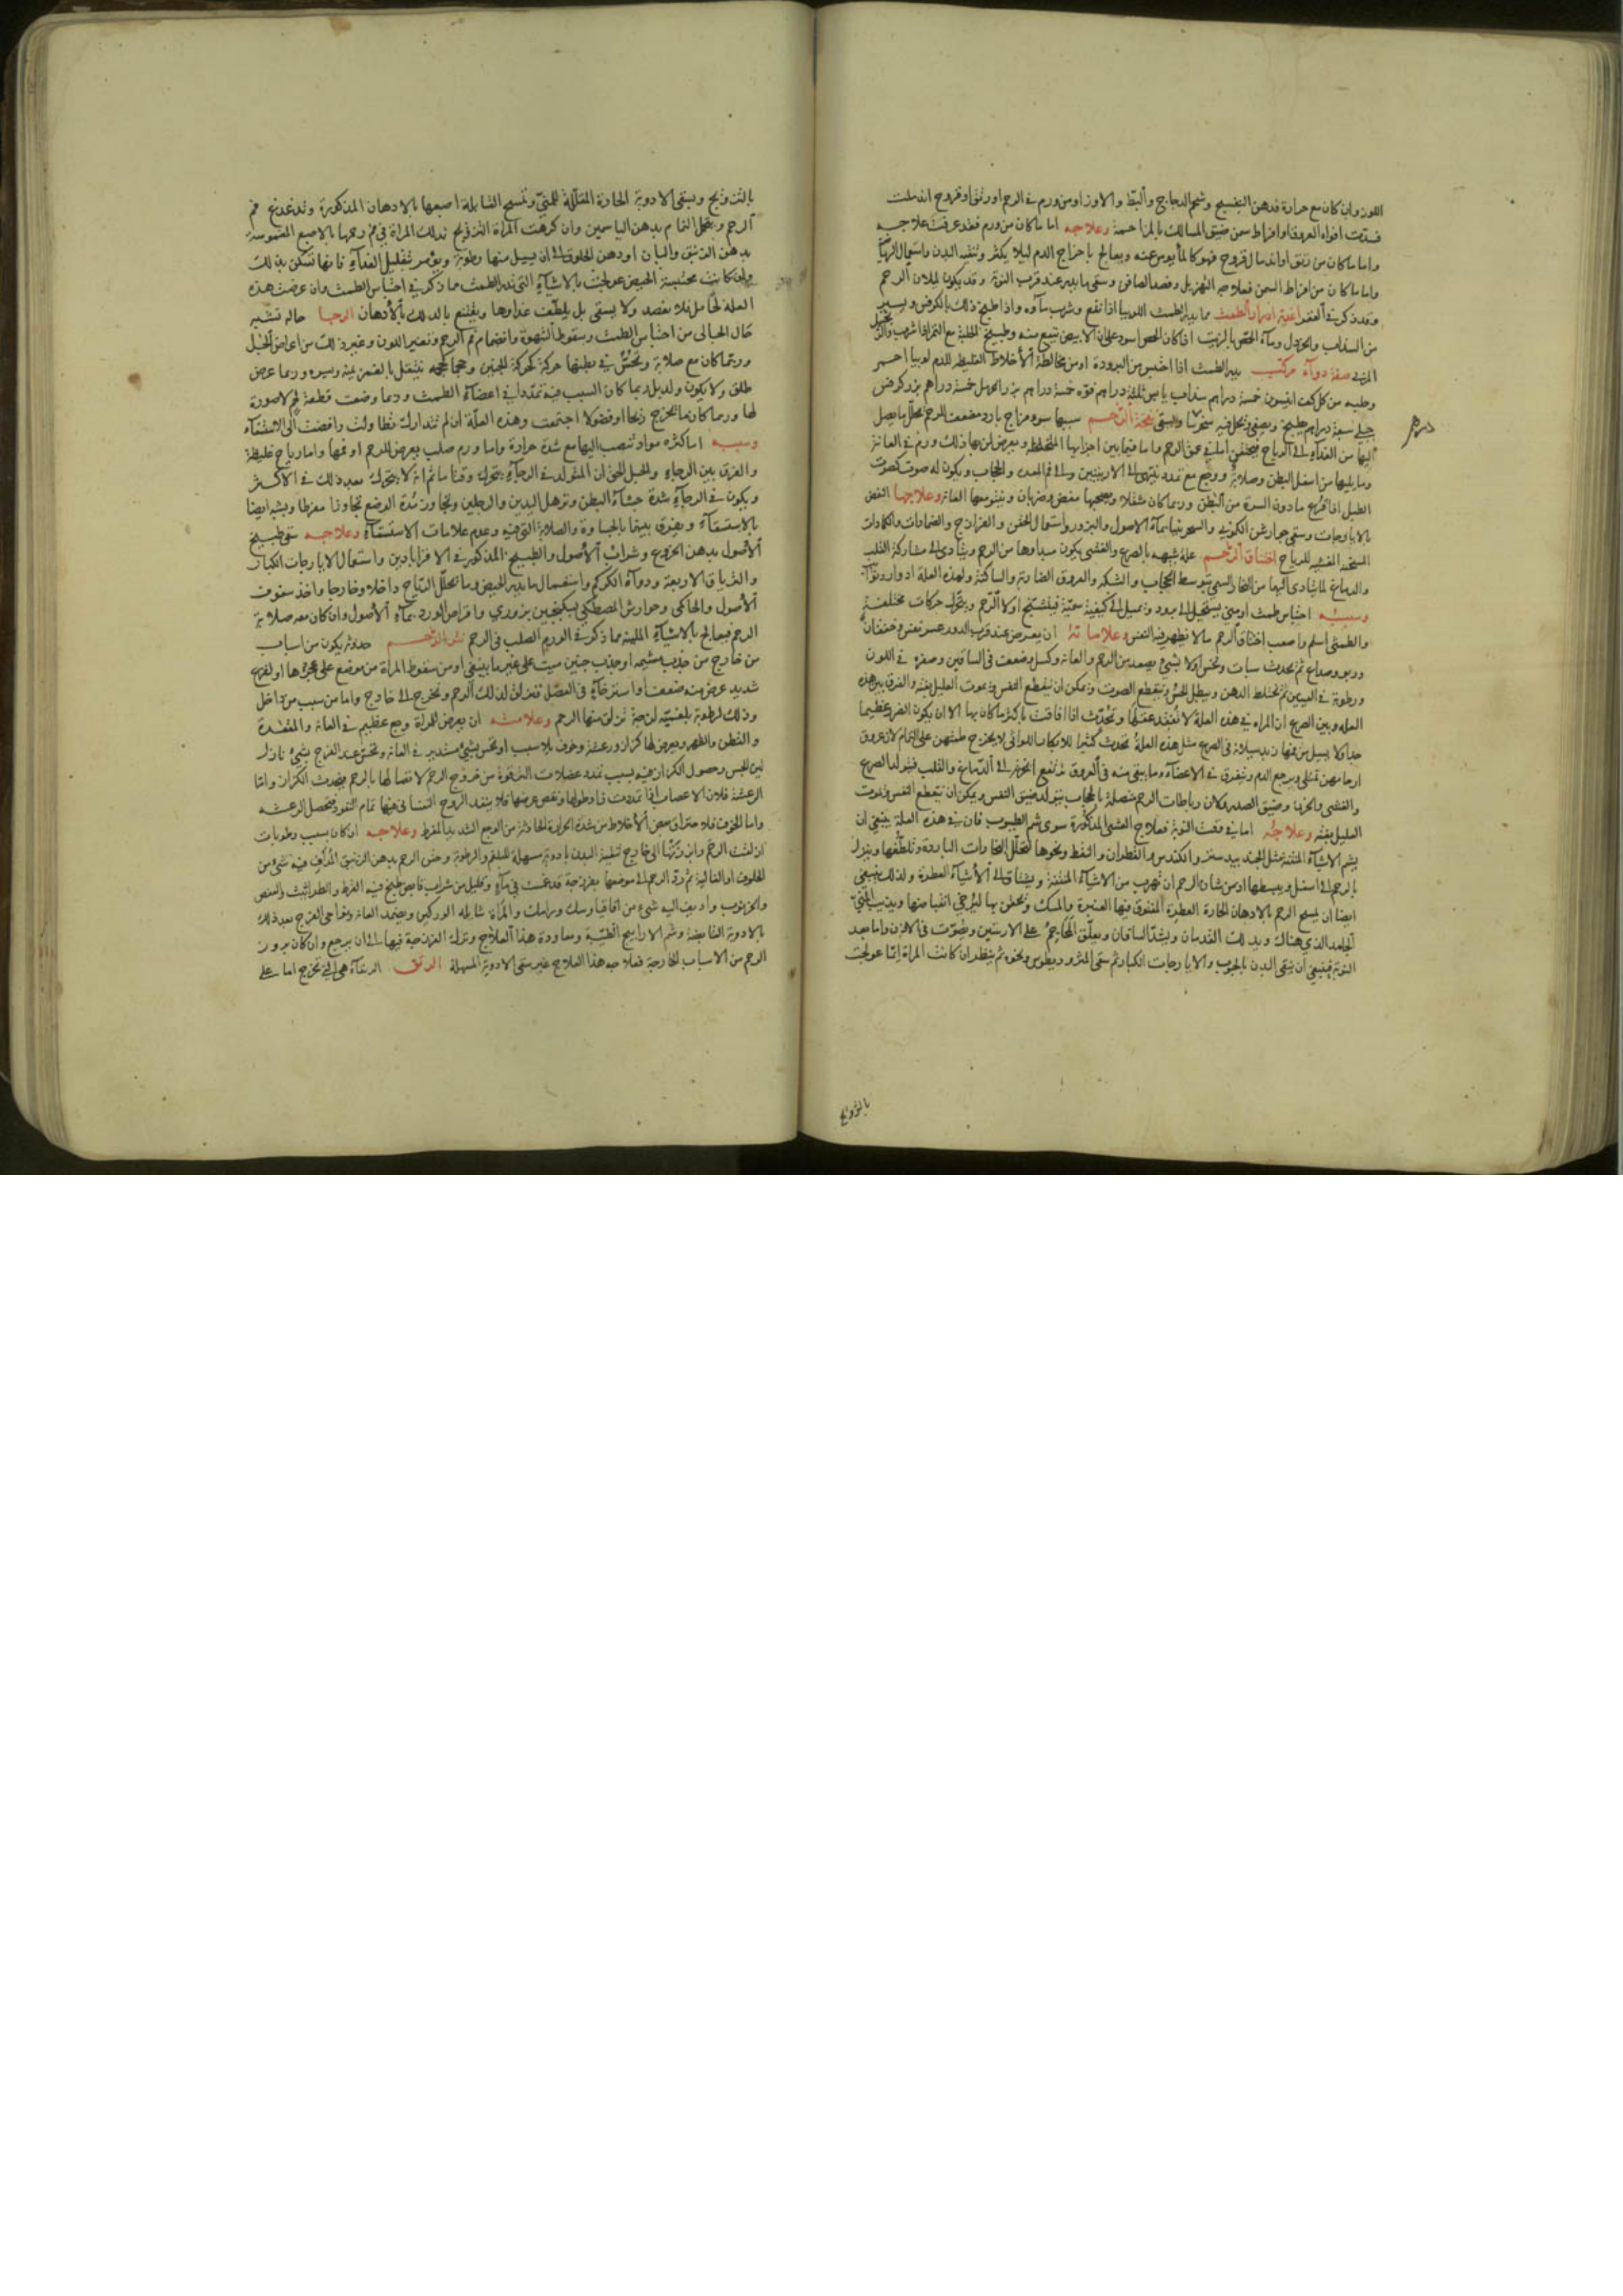 اللوز وان كان مع حرارة فدهن البنفسج وشحم الدجاج والبط والاوز او من ورم في الرحم او رتق او قروح اندملت
فسدت افواه العروق او افراط سمن ضيق المسالك بالمزاحمة وعلاجه اما ما كان من ورم فقد عرفت علاجه
واما ما كان من رتق او اندمال قروح فهو كالمأيوس عنه ويعالج باخراج الدم ليلا يكثر وتنقية البدن واستعمال الرياضة
واما ما كان من افراط السمن فعلاجه التهزيل وفصد الصافن وسقي ما يدر عند قرب النوبة وقد يكون لميلان الرحم
وقد ذكر في العقر اغذية ادرار الطمث مما يدر الطمث اللوبيا اذا نقع وشرب ماؤه واذا طبخ ذلك بالكرفس ويسير
من السذاب والخردل وماء الحمص بالزيت اذا كان الحمص اسود على ان الابيض ينفع منه وطبيخ الحلبة مع التمر اذا شرب
صفة دواء مركب يدر الطمث اذا احتبس من البرودة او من مخالطة الاخلاط الغليظة للدم لوبيا احمر
وحلبه من كل كف انيسون خمسة دراهم سذاب يابس ثلثة دراهم فوه خمسة دراهم بزر كرفس
جبلي سبعة دراهم يطبخ ويصفى ويسقى نفخة الرحم سببها سوء مزاج بارد مضعف للرحم يحلل ما يصل
اليها من الغذاء الى الرياح فيحتقن اما في عمق الرحم واما فيما بين اجزايها ويعرض لمن بها ذلك ورم في العانة
وما يليها من اسفل البطن وصلابة ووجع مع تمدد ينتهي الى الاربيتين والى فم المعدة والحجاب ويكون له صوت كصوت
الطبل اذا قرع ما دون السرة من البطن وربما كان متنقلا ويصحبها مغص وضربان وعلاجها النفض
بالايارجات وسقي جوارشن الكموني بماء الاصول والبزور واستعمال الحقن والفرازج والضمادات والكمادات
المسخنة المفشية للرياح اختناق الرحم علة شبيهة بالصرع والغشي يكون مبداوها من الرحم ويتادى الى مشاركة القلب
والدماغ لما يتادى اليها من البخار السمي بتوسط الحجاب والشبكه والعروق الضاربة والساكنة ولهذه العلة ادوار ونوايب
وسببه احتباس طمث او مني يستحيل الى برد ويميل الى كيفية سمية فيتشنج اولا الرحم ويتحرك حركات مختلفة
والطمثي اسلم واصعب اختناق الرحم ما لا يظهر فيه النفس وعلاماته ان يعرض عند قرب الدور عسر نفس وخفقان
وربو وصداع ثم يحدث سبات وتحس اولا بشيء يصعد من الرحم والعانة وكسل وضعف في الساقين وصفرة في اللون
ورطوبة في العينين ثم يختلط الذهن ويبطل الحس وينقطع الصوت ويمكن ان ينقطع النفس وتموت العليل بغتة والفرق بين هذه
العلة وبين الصرع ان المراة في هذه العلة لا تفقد عقلها وتحدث اذا افاقت باكثر ما كان بها الا ان يكون الضر عظيما
جدا ولا يسيل من فمها زبد سيلانه في الصرع مثل هذه العلة تحدث كثيرا للابكار اللواتي لا يخرج طمثهن على التمام لان عروق
ارحامهن تمتلي ويرجع الدم ويتفرق في الاعضاء وما يبقى منه في العروق يرتفع البخار الى الدماغ والقلب فيتولد الصرع
والغشي والحزن وضيق الصدر ولان رباطات الرحم متصلة بالحجاب يتولد ضيق النفس ويمكن ان ينقطع النفس فتموت
العليل بغته وعلاجه اما في وقت النوبة فعلاج الغشي المذكورة سوى شم الطيوب فان في هذه العلة ينبغي ان
يشم الاشياء المنتنة مثل الجندبيدستر والكندس والقطران والنفط ونحوها لتحلل البخارات الباردة وتلطفها وينزل
بالرحم الى اسفل ويبسطها اذ من شان الرحم ان تهرب من الاشياء المنتنة ويشتاق الى الاشياء العطرة ولذلك ينبغي
ايضا ان يمسح الرحم بالادهان الحارة العطرة المفتوق فيها العنبرة والمسك وتحتقن بها لترخي انقباضها ويذيب المني
الجامد الذي هناك ويدلك القدمان ويشد الساقان ويعلق المحاجم على الاربيتين ويصوت في الاذن واما بعد
النوبة فينبغي ان ينقى البدن بالحبوب والايارجات الكبار ثم سقي المثروديطوس ونحوه ثم ينظر ان كانت المراة ايما عولجت
بالتزويج
بالتزويج وبسقي الادوية الحارة المقللة للمني وتمسح القابلة اصبعها بالادهان المذكورة وتدغدغ فم
الرحم ويتحمل الشام بدهن الياسمين وان كرهت المراة التزويج تدلك المراة في فم رحمها بالاصبع المغموسة
بدهن الزنبق والبان او دهن الخلوق الى ان يسيل منها رطوبة ويؤمر بتقليل الغذاء فانها تسكن بذلك
وان كانت محتبسة الحيض عولجت بالاشياء التي تدر الطمث مما ذكر في احتباس الطمث وان عرضت هذه
العلة لحامل فلا يفصد ولا يسقى بل يلطف غذاوها ويقتنع بالدلك بالادهان الرجا حاله تشبه
حال الحبالى من احتباس الطمث وسقوط الشهوة وانضمام فم الرحم وتغير اللون وغير ذلك من اعراض الحبل
وربما كان مع صلابة وتحس في بطنها حركة كحركة الجنين وحجما كحجمه ينتقل بالغمز يمنة ويسره وربما عرض
طلق ولا يكون ولد بل ربما كان السبب فيه تمددا في اعضاء الطمث وربما وضعت قطعة لحم لا صورة
لها وربما كان ما يخرج ريحا او فضولا اجتمعت وهذه العلة ان لم تتدارك تطاولت وافضت الى الاستسقاء
وسببه اما كثره مواد تنصب اليها مع شدة حرارة واما ورم صلب يعرض للرحم او فمها واما رياح غليظة
والفرق بين الرجاء والحبل الحق ان المتولد في الرجاء يتحرك وقتا ما ثم انه لا يتحرك بعد ذلك في الاكثر
ويكون في الرجاء شدة جشاء البطن وترهل اليدين والرجلين وتجاوز مدة الوضع تجاوزا مفرطا ويشبه ايضا
بالاستسقاء ويفرق بينهما بالجساوة والصلابة التي فيه وعدم علامات الاستسقاء وعلاجه سقي طبيخ
الاصول بدهن الخروع وشراب الاصول والطبيخ المذكور في الاقراباذين واستعمال الايارجات الكبار
والترياق الاربعة ودواء الكركم واستعمال ما يدر الحيض وما تحلل الرياح داخلا وخارجا واخذ سفوف
الاصول والحاكي وجوارش المصطكي بسكنجبين بزوري واقراص الورد بماء الاصول وان كان معه صلابة
الرحم فيعالج بالاشياء الملينة مما ذكر في الورم الصلب في الرحم نتو الرحم حدوثه يكون من اسباب
من خارج من جذب مشيمه او جذب جنين ميت على غير ما ينبغي او من سقوط المراة من موضع على عجزها او لفزع
شديد عرض منه ضعف او استرخاء في العضل فتزلق لذلك الرحم وتخرج الى خارج واما من سبب من داخل
وذلك لرطوبة بلغمية لزجة تزلق منها الرحم وعلامته ان يعرض للمراة وجع عظيم في العانة والمقعدة
والقطن والظهر ويعرض لها كزاز ورعشة وخوف بلا سبب او تحس بشيء مستدير في العانة وتحس عند الفرج بشيء نازل
لين المجس وحصول الكزاز فيه بسبب تمدد عضلات من خروج الرحم لاتصالها بالرحم فيحدث الكزاز واما
الرعشة فلان الاعصاب اذا تمددت زاد طولها ونقص عرضها فلا ينفذ الروح النفساني فيها تمام النفوذ فتحصل الرعشه
واما الخوف فلاحتراق بعض الاخلاط من شدة الحرارة الحادثة من الوجع الشديد المفرط وعلاجه ان كان بسبب رطوبات
ازلقت الرحم وابرزتها الى خارج تنقية البدن بادوية مسهلة للبلغم والرطوبة وحقن الرحم بدهن الزنبق المداف فيه شيء من
الخلوق او الغالية ثم ترد الرحم الى موضعها بفرزجة قد غمست في ماء وقليل من شراب قابض طبخ فيه القرظ والطراثيث والعفص
والخرنوب واديف اليه شيء من اقاقيا وسك ورامك والمراة شايلة الوركين ويضمد العانة ونواحي الفرج بعد ذلك
بالادوية القابضة وشم الاراييح الطيبة ومعاودة هذا العلاج وترك الفرزجة فيها الى ان يرجع وان كان بروز
الرحم من الاسباب الخارجة فعلاجه هذا العلاج غير سقي الادوية المسهلة الرتق الرتقاء هي التي تخرج اما على